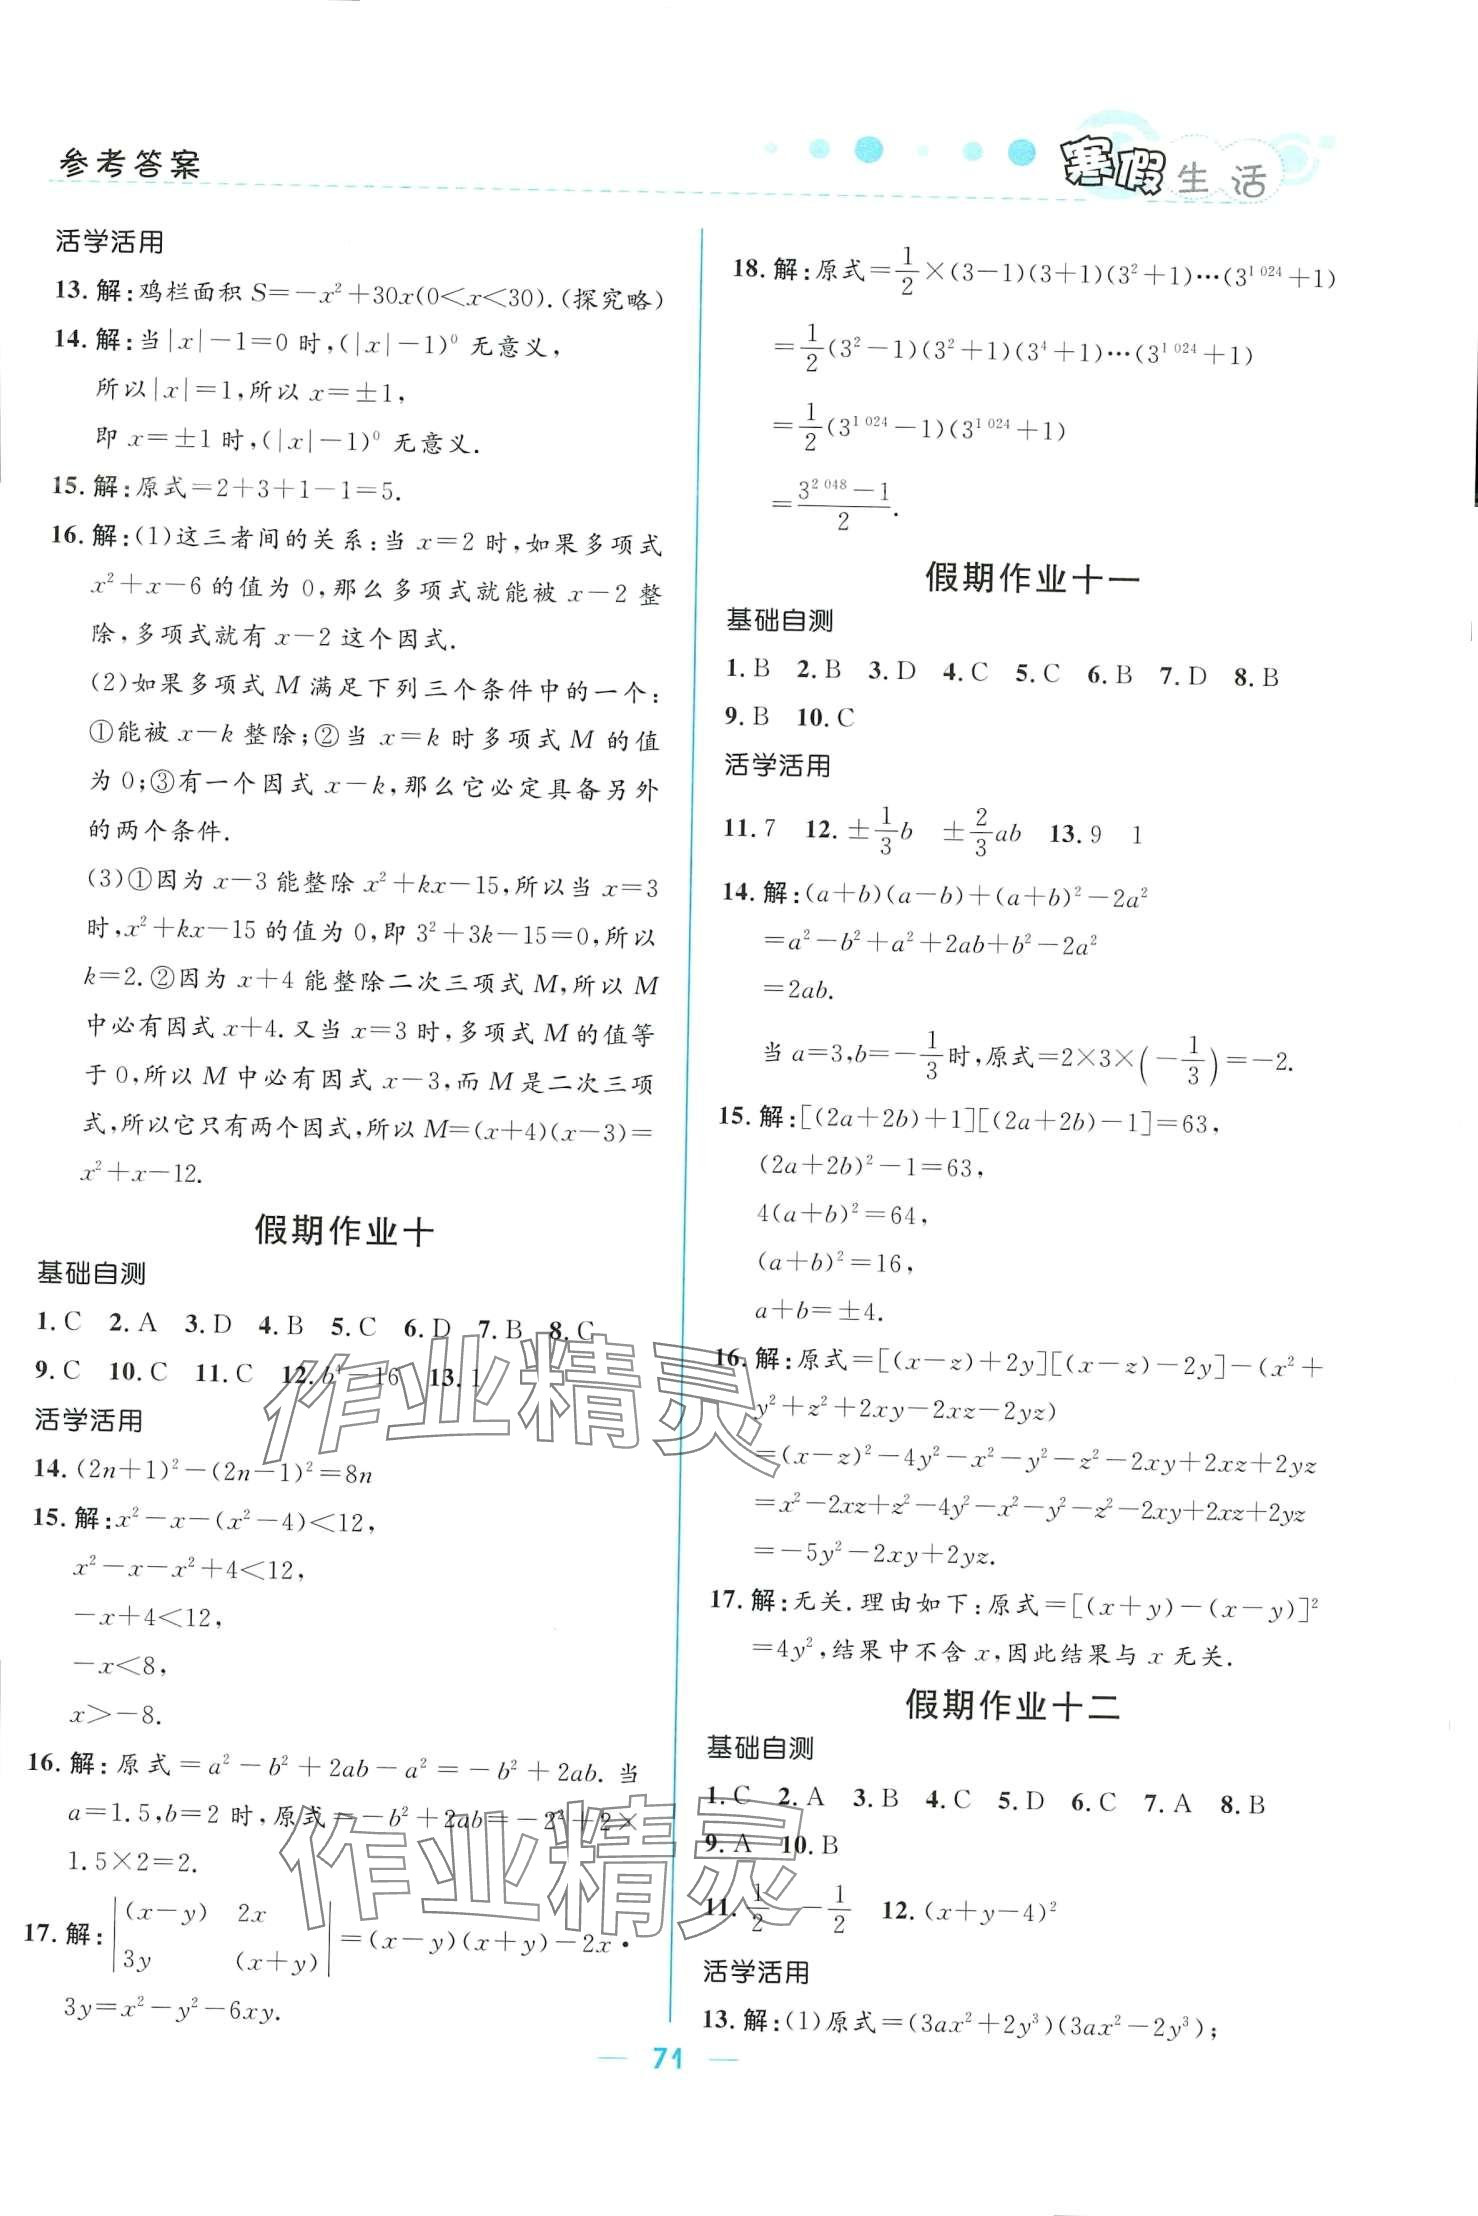 参考答案
寒假生活
活学活用
13. 解:鸡栏面积 S=-x²+30x(0<x<30).(探究略)
14. 解:当|x|-1=0 时,(|x|-1)⁰ 无意义,
所以|x|=1,所以 x=±1,
即 x=±1 时,(|x|-1)⁰ 无意义.
15. 解:原式=2+3+1-1=5.
16. 解:(1)这三者间的关系:当 x=2 时,如果多项式
x²+x-6 的值为 0,那么多项式就能被 x-2 整
除,多项式就有 x-2 这个因式.
(2)如果多项式 M 满足下列三个条件中的一个:
①能被 x-k 整除;②当 x=k 时多项式 M 的值
为 0;③有一个因式 x-k,那么它必定具备另外
的两个条件.
(3)①因为 x-3 能整除 x²+kx-15,所以当 x=3
时,x²+kx-15 的值为 0,即 3²+3k-15=0,所以
k=2.②因为 x+4 能整除二次三项式 M,所以 M
中必有因式 x+4.又当 x=3 时,多项式 M 的值等
于 0,所以 M 中必有因式 x-3,而 M 是二次三项
式,所以它只有两个因式,所以 M=(x+4)(x-3)=
x²+x-12.
假期作业十
基础自测
1. C 2. A 3. D 4. B 5. C 6. D 7. B 8. C
9. C 10. C 11. C 12. b⁴-16 13. 1
活学活用
14. (2n+1)²-(2n-1)²=8n
15. 解:x²-x-(x²-4)<12,
x²-x-x²+4<12,
-x+4<12,
-x<8,
x>-8.
16. 解:原式=a²-b²+2ab-a²=-b²+2ab. 当
a=1.5,b=2 时,原式=-b²+2ab=-2²+2×
1.5×2=2.
17. 解:|(x-y) 2x
3y (x+y)|=(x-y)(x+y)-2x·
3y=x²-y²-6xy.
18. 解:原式=1/2×(3-1)(3+1)(3²+1)⋯(3^{1 024}+1)
=1/2(3²-1)(3²+1)(3⁴+1)⋯(3^{1 024}+1)
=1/2(3^{1 024}-1)(3^{1 024}+1)
=(3^{2 048}-1)/2.
假期作业十一
基础自测
1. B 2. B 3. D 4. C 5. C 6. B 7. D 8. B
9. B 10. C
活学活用
11. 7 12. ±1/3b ±2/3ab 13. 9 1
14. 解:(a+b)(a-b)+(a+b)²-2a²
=a²-b²+a²+2ab+b²-2a²
=2ab.
当 a=3,b=-1/3时,原式=2×3×(-1/3)=-2.
15. 解:[(2a+2b)+1][(2a+2b)-1]=63,
(2a+2b)²-1=63,
4(a+b)²=64,
(a+b)²=16,
a+b=±4.
16. 解:原式=[(x-z)+2y][(x-z)-2y]-(x²+
y²+z²+2xy-2xz-2yz)
=(x-z)²-4y²-x²-y²-z²-2xy+2xz+2yz
=x²-2xz+z²-4y²-x²-y²-z²-2xy+2xz+2yz
=-5y²-2xy+2yz.
17. 解:无关.理由如下:原式=[(x+y)-(x-y)]²
=4y²,结果中不含 x,因此结果与 x 无关.
假期作业十二
基础自测
1. C 2. A 3. B 4. C 5. D 6. C 7. A 8. B
9. A 10. B
11. 1/2 -1/2 12. (x+y-4)²
活学活用
13. 解:(1)原式=(3ax²+2y³)(3ax²-2y³);
71
作业精灵
作业精灵